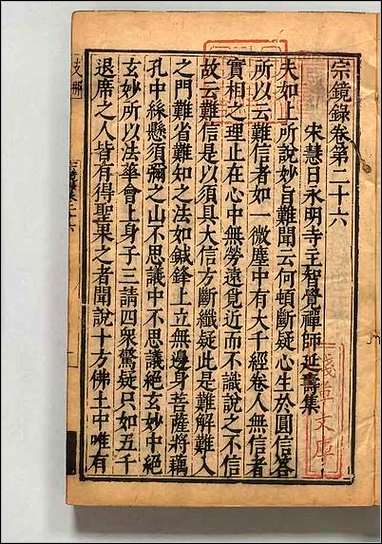 宗鏡錄卷第二十六
宋慧日永明寺主智覺禪師延壽集
夫如上所說妙旨難聞云何頓斷疑心生於圓信答
所以云難信者如一微塵中有大千經卷人無信者
實相之理止在心中無勞遠覓近而不識說之不信
故云難信是以須具大信方斷纖疑此是難解難入
之門難省難知之法如鍼鋒上立無邊身菩薩將藕
孔中絲懸須彌之山不思議中不思議絕玄妙中絕
玄妙所以法華會上身子三請四衆驚疑只如五千
退席之人皆有得聖果之者聞說十方佛土中唯有